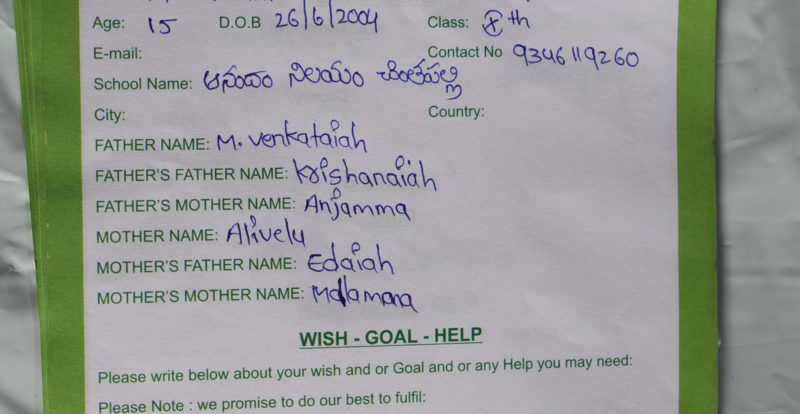 Age: 15 D.O.B 26/6/2004 Class: Xth
E-mail: Contact No 9346119260
School Name: ఆనందం నిలయం చింతపల్లి
City: Country:
FATHER NAME: M. Venkataiah
FATHER'S FATHER NAME: Krishanaiah
FATHER'S MOTHER NAME: Anjamma
MOTHER NAME: Alively
MOTHER'S FATHER NAME: Edaiah
MOTHER'S MOTHER NAME:
WISH - GOAL - HELP
Please write below about your wish and or Goal and or any Help you may need:
Please Note : we promise to do our best to fulfil: